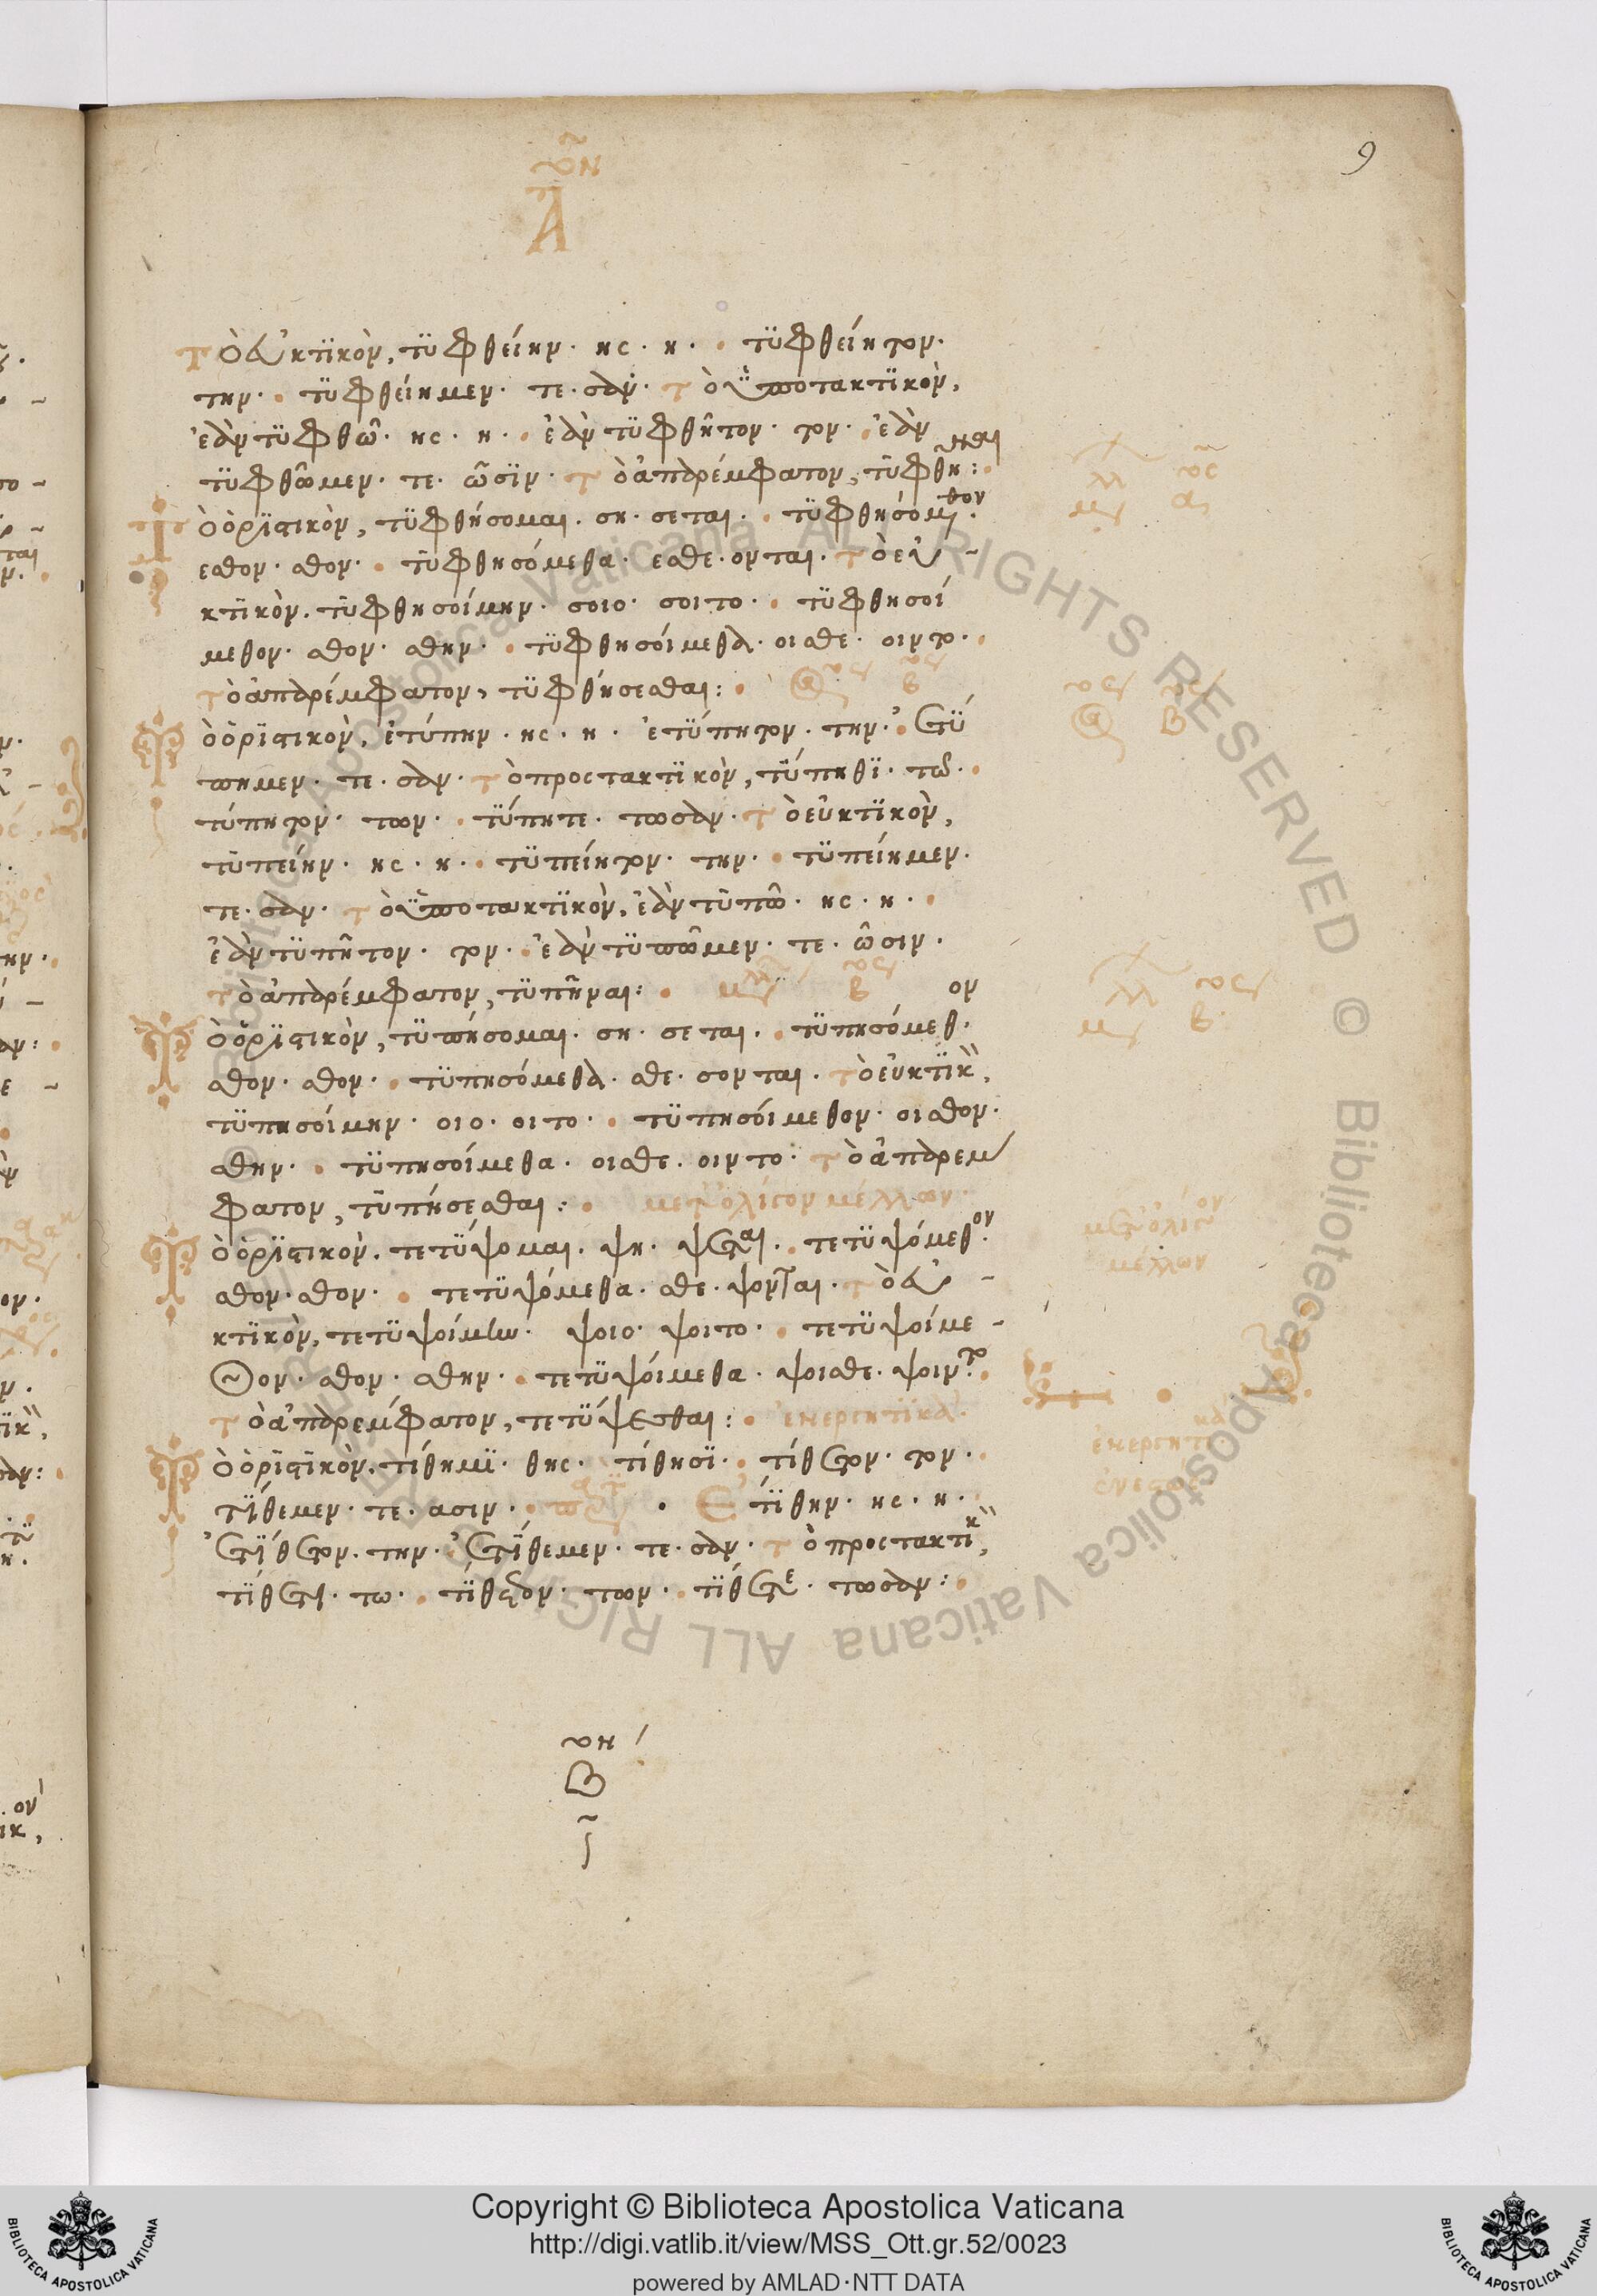 9
Α
Τὸ εὐκτϊκὸν, τϋφθείην· ης· η· τϋφθείητον·
την· τϋφθείημεν· τε· σαν· τὸ ὑποτακτϊκὸν,
ἐὰν τϋφθῶ· ης· η· ἐὰν τϋφθῆτον· τον· ἐὰν
τϋφθῶμεν· τε· ῶσϊν· τὸ ἀπαρέμφατον, τϋφθηναι:
Τὸ ὁρϊστικὸν, τϋφθήσομαι· ση· σεται· τϋφθησόμεθον·
εσθον· σθον· τϋφθησόμεθα· εσθε· ονται· τὸ εὐ-
κτϊκὸν. τϋφθησοίμην· σοιο· σοιτο· τϋφθησοί
μεθον· σθον· σθην· τϋφθησοίμεθα· οισθε· οιντο·
τὸ ἀπαρέμφατον, τϋφθήσεσθαι:
Τὸ ὁρϊστικὸν, ἐτύπην· ης· η· ἐτϋπητον· την· ἐτϋ
πημεν· τε· σαν· τὸ προστακτϊκὸν, τύπηθϊ· τω·
τύπητον· των· τϋπητε· τωσαν· τὸ εὐκτϊκὸν,
τϋπείην· ης· η· τϋπείητον· την· τϋπείημεν·
τε· σαν· τὸ ὑποτακτϊκὸν, ἐὰν τϋπῶ· ης· η·
ἐὰν τϋπῆτον· τον· ἐὰν τϋπῶμεν· τε· ῶσιν·
τὸ ἀπαρέμφατον, τϋπῆναι:
Τὸ ὁρϊστικὸν, τϋπήσομαι· ση· σεται· τϋπησόμεθον·
σθον· σθον· τϋπησόμεθα· σθε· σονται· τὸ εὐκτϊκ,
τϋπησοίμην· οιο· οιτο· τϋπησοίμεθον· οισθον·
σθην· τϋπησοίμεθα· οισθε· οιντο· τὸ ἀπαρεμ
φατον, τϋπήσεσθαι: μετ' ὀλίγον μέλλων·
Τὸ ὁρϊστικὸν. τετϋψομαι· ψη· ψεται· τετϋψόμεθον·
σθον· σθον· τετϋψόμεθα· σθε· ψονται· τὸ εὐ-
κτϊκὸν, τετϋψοίμην· ψοιο· ψοιτο· τετϋψοίμε-
θον· σθον· σθην· τετϋψοίμεθα· ψοισθε· ψοιντο·
τὸ ἀπαρεμφατον, τετϋψεσθαι: ἐνεργητϊκὰ·
Τὸ ὁρϊστϊκὸν. τίθημϊ· θης· τίθησϊ· τίθετον· τον·
τϊθεμεν· τε· ασιν· Ἐτϊθην· ης· η·
ἐτϊθετον· την· ἐτϊθεμεν· τε· σαν· τὸ προστακτικ,
τϊθετι· τω· τϊθετον· των· τϊθετε· τωσαν:
μετ' ὀλιγον
μέλλων
Β
Copyright © Biblioteca Apostolica Vaticana
http://digi.vatlib.it/view/MSS_Ott.gr.52/0023
powered by AMLAD·NTT DATA
BIBLIOTECA APOSTOLICA VATICANA
BIBLIOTECA APOSTOLICA VATICANA